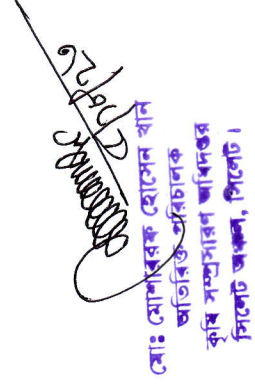 মোঃ মোশাররফ হোসেন খান
অতিরিক্ত পরিচালক
কৃষি সম্প্রসারণ অধিদপ্তর
সিলেট অঞ্চল, সিলেট।